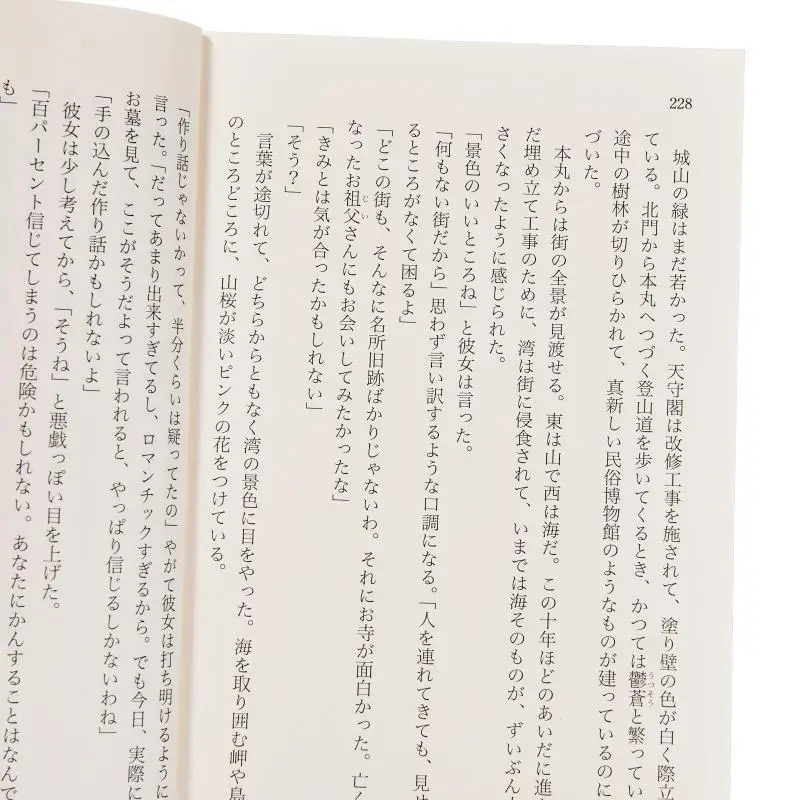 228
城山の緑はまだ若かった。天守閣は改修工事を施されて、塗り壁の色が白く際立
ている。北門から本丸へつづく登山道を歩いてくるとき、かつては鬱蒼と繁ってい
うつそう
途中の樹林が切りひらかれて、真新しい民俗博物館のようなものが建っているのに
づいた。
本丸からは街の全景が見渡せる。東は山で西は海だ。この十年ほどのあいだに進
だ埋め立て工事のために、湾は街に侵食されて、いまでは海そのものが、ずいぶん
さくなったように感じられた。
「景色のいいところね」と彼女は言った。
「何もない街だから」思わず言い訳するような口調になる。「人を連れてきても、見
るところがなくて困るよ」
「どこの街も、そんなに名所旧跡ばかりじゃないわ。それにお寺が面白かった。亡く
なったお祖父さんにもお会いしてみたかったな」
「きみとは気が合ったかもしれない」
「そう？」
言葉が途切れて、どちらからともなく湾の景色に目をやった。海を取り囲む岬や島
のところどころに、山桜が淡いピンクの花をつけている。
「作り話じゃないかって、半分くらいは疑ってたの」やがて彼女は打ち明けるように
言った。「だってあまり出来すぎてるし、ロマンチックすぎるから。でも今日、実際に
お墓を見て、ここがそうだよって言われると、やっぱり信じるしかないわね」
「手の込んだ作り話かもしれないよ」
彼女は少し考えてから、「そうね」と悪戯っぽい目を上げた。
「百パーセント信じてしまうのは危険かもしれない。あなたにかんすることはなんで
も」